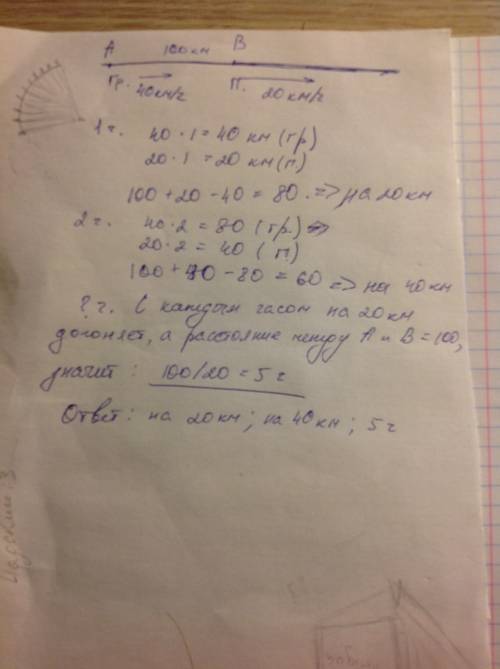 A 100км B
гр. 40км/г П. 20км/г
1 г. 40 · 1 = 40 км (гр)
20 · 1 = 20 км (п)
100 + 20 - 40 = 80. => на 20 км
2 г. 40 · 2 = 80 (гр.) =>
20 · 2 = 40 (п)
100 + 40 - 80 = 60 => на 40 км
? г. С каждым часом на 20 км
догоняет, а расстояние между А и В = 100,
значит: 100/20 = 5 г
Ответ: на 20 км; на 40 км; 5 г